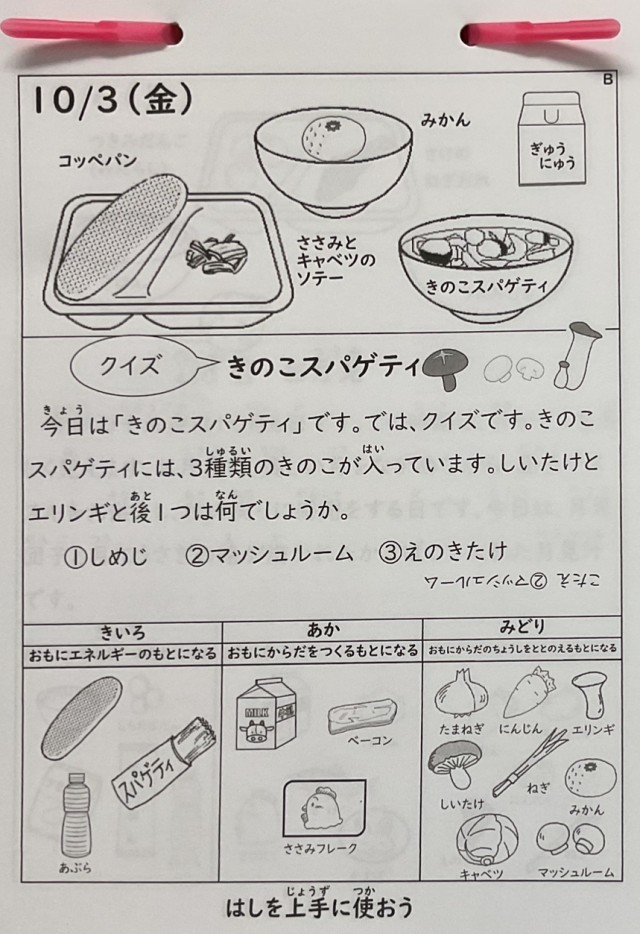 B
10/3(金)
コッペパン
みかん
ぎゅう
にゅう
ささみと
キャベツの
ソテー
きのこスパゲティ
クイズ
きのこスパゲティ
今日は「きのこスパゲティ」です。では、クイズです。きのこ
スパゲティには、3種類のきのこが入っています。しいたけと
エリンギと後1つは何でしょうか。
①しめじ ②マッシュルーム ③えのきたけ
こたえ ②マッシュルーム
きいろ
おもにエネルギーのもとになる
スパゲティ
あぶら
あか
おもにからだをつくるもとになる
MILK
ベーコン
ささみフレーク
みどり
おもにからだのちょうしをととのえるもとになる
たまねぎ にんじん エリンギ
しいたけ ねぎ みかん
キャベツ マッシュルーム
はしを上手に使おう